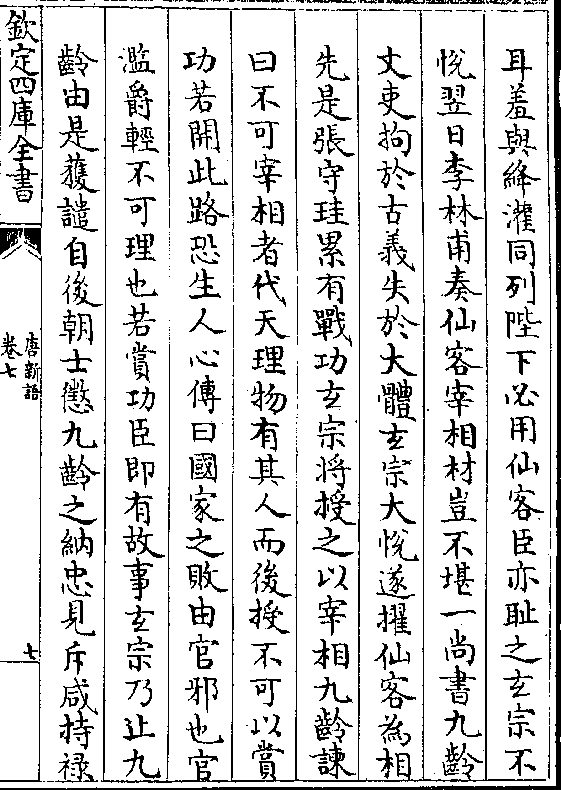 耳羞與絳灌同列陛下必用仙客臣亦恥之玄宗不
悅翌日李林甫奏仙客宰相材豈不堪一尚書九齡
文吏拘於古義失於大體玄宗大悅遂擢仙客為相
先是張守珪累有戰功玄宗將授之以宰相九齡諫
曰不可宰相者代天理物有其人而後授不可以賞
功若開此路恐生人心傳曰國家之敗由官邪也官
濫爵輕不可理也若賞功臣即有故事玄宗乃止九
齡由是獲譴自後朝士懲九齡之納忠見斥咸持祿
欽定四庫全書
唐新語
卷七
七